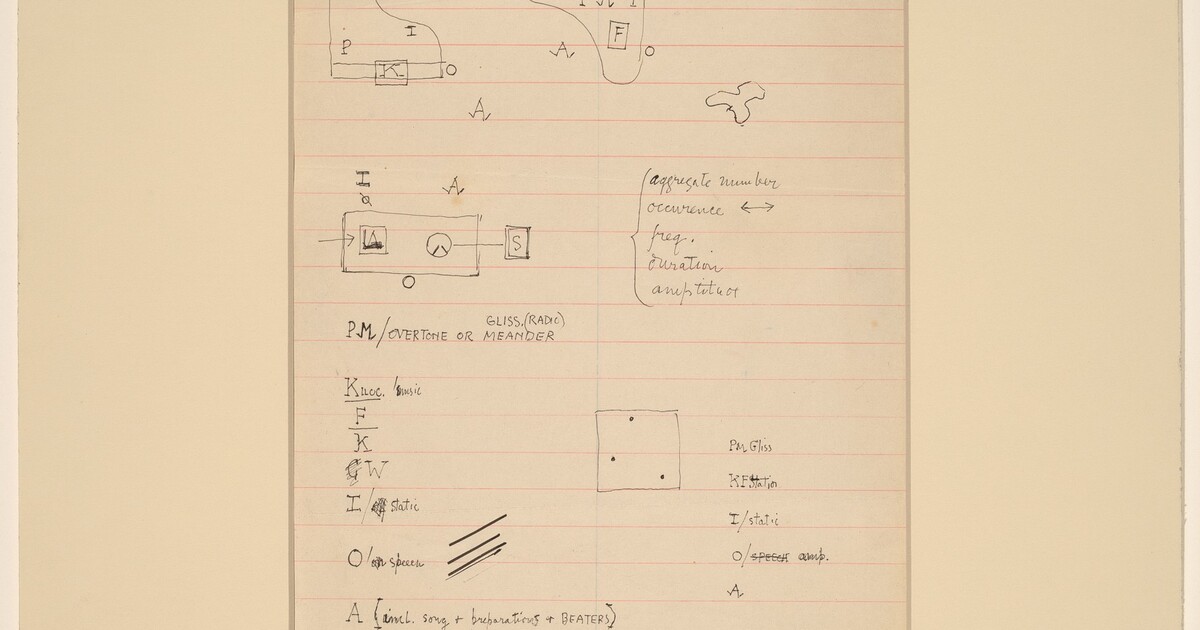 P M I
I
F
P
A
O
K
O
A
I
A
aggregate number
occurence ↔
freq.
duration
amplitude
S
O
GLISS. (RADIO)
PM/OVERTONE OR MEANDER
music
F
K
GW
PM Gliss
KF Station
I/ static
I/static
O/ speech
O/SPEECH amp.
A
A [incl. song + preparations + BEATERS]